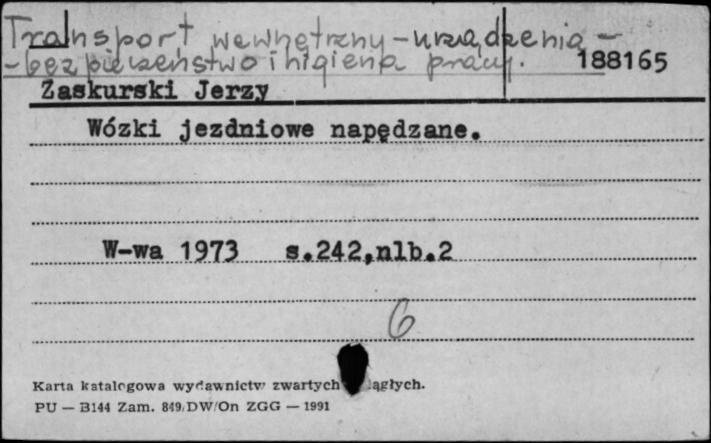 Transport wewnętrzny - urządzenia -
- bezpieczeństwo i higiena pracy. 188165
Zaskurski Jerzy
Wózki jezdniowe napędzane.
W-wa 1973 s.242,nlb.2
6
Karta katalogowa wydawnictw zwartych ągłych.
PU — B144 Zam. 849/DW/On ZGG — 1991